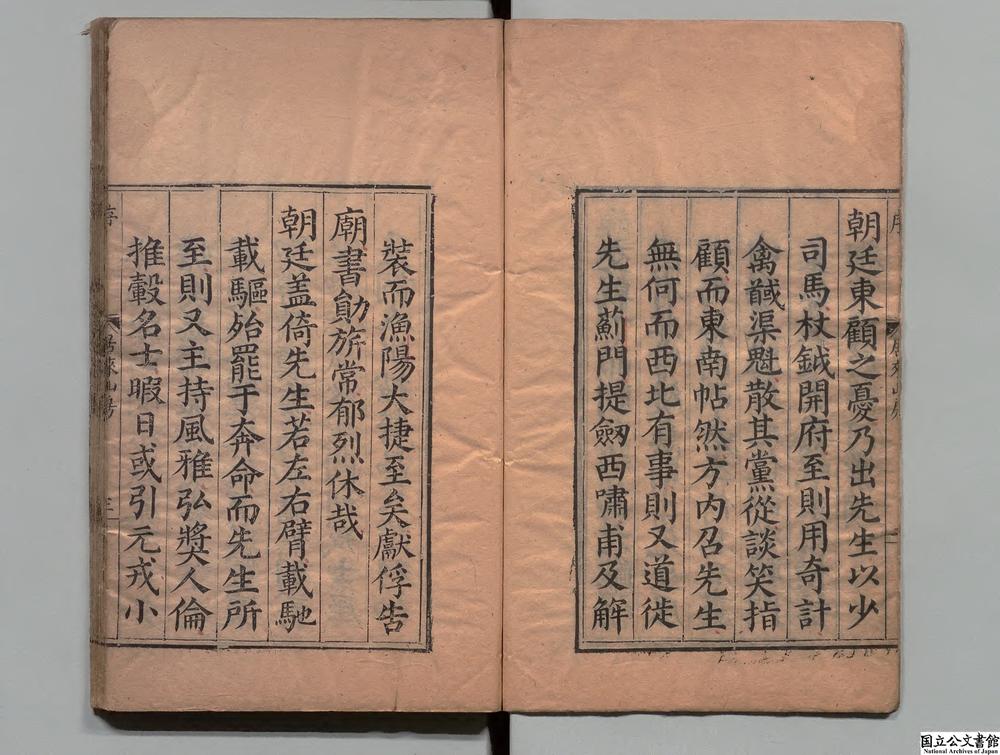 朝廷東顧之憂乃出先生以少
司馬杖鉞開府至則用奇計
禽馘渠魁散其黨從談笑指
顧而東南帖然方內召先生
無何而西北有事則又道徙
先生薊門提劒西嘯甫及解
裝而漁陽大捷至矣獻俘告
廟書勛旂常郁烈休哉
朝廷蓋倚先生若左右臂載馳
載驅殆罷于奔命而先生所
至則又主持風雅弘奬人倫
推轂名士暇日或引元戎小
序
三
国立公文書館
National Archives of Japan